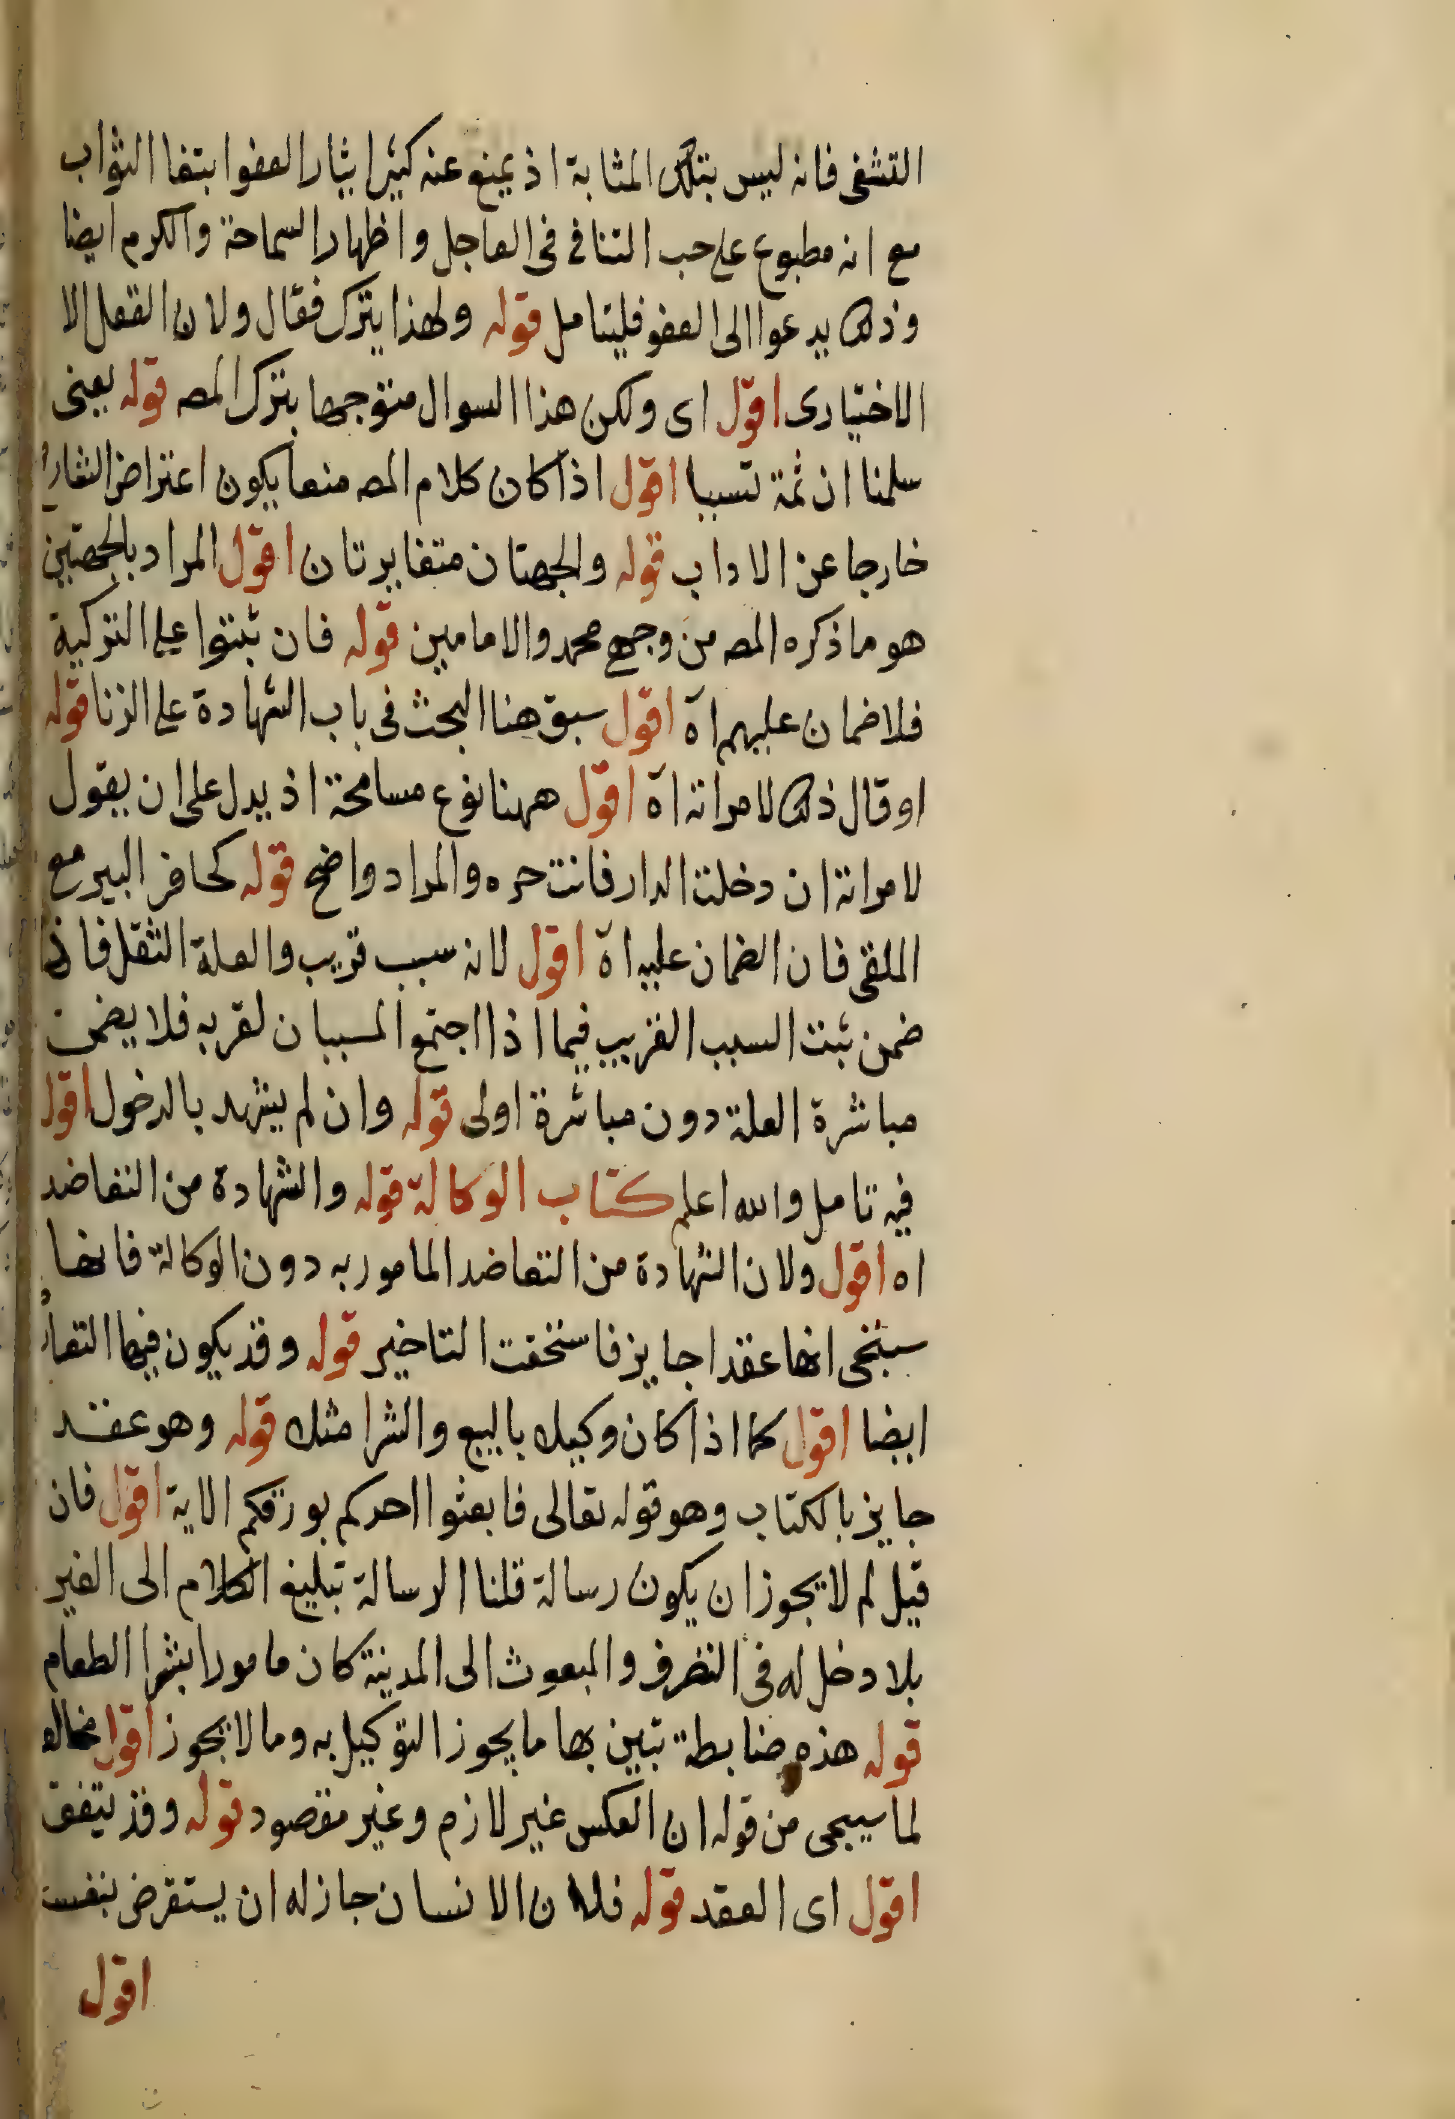 التشفى فانه ليس بتلك المثابة اذ يمنع عنه كثيرا يثار العفو ابتغا الثواب
مع انه مطبوع على حب التنافى فى العاجل واظهار السماحة والكرم ايضا
وذلك يدعوا الى العفو فليتامل قوله ولهذا يترك فقال ولان الفعل الا
الاختيارى اقول اى ولكن هذا السوال متوجها بترك المصه قوله يعنى
سلمنا ان ثمة تسببا اقول اذا كان كلام المصه منعا يكون اعتراض الشارح
خارجا عن الاداب قوله والجهتان متغايرتان اقول المراد بالجهتين
هو ما ذكره المصه من وجهى محمد والامامين قوله فان ثبتوا على التزكية
فلا ضمان عليهم اه اقول سبق هنا البحث فى باب الشهادة على الزنا قوله
او قال ذلك لامراته اه اقول ههنا نوع مسامحة اذ يدل على ان يقول
لامراته ان دخلت الدار فانت حره والمراد واضح قوله كحافر البير مع
الملقى فان الضمان عليه اه اقول لانه سبب قريب والعلة الثقل فاذا
ضمن ثبت السبب القريب فيما اذا اجتمع المسببان لقربه فلا يضمن
مباشرة العلة دون مباشرة اولى قوله وان لم يشهد بالدخول اقول
فيه تامل والله اعلم كتاب الوكالة قوله والشهادة من التعاضد
اه اقول ولان الشهادة من التعاضد المامور به دون الوكالة فانها
سيجى انها عقدا جايز فاستحقت التاخير قوله وقد يكون فيها التعا
ايضا اقول كما اذا كان وكيله بالبيع والشرا مثله قوله وهو عقد
جايز بالكتاب وهو قوله تعالى فابعثوا احدكم بورقكم الاية اقول فان
قيل لم لا يجوز ان يكون رسالة قلنا الرسالة تبليغ الكلام الى الغير
بلا دخل له فى التصرف والمبعوث الى المدينة كان مامورا بشرا الطعام
قوله هذه ضابطة تبين بها ما يجوز التوكيل به وما لا يجوز اقول مخالف
لما سيجى من قوله ان العكس غير لازم وغير مقصود قوله وقد يتفق
اقول اى العقد قوله فلان الانسان جاز له ان يستقرض بنفسه
اقول